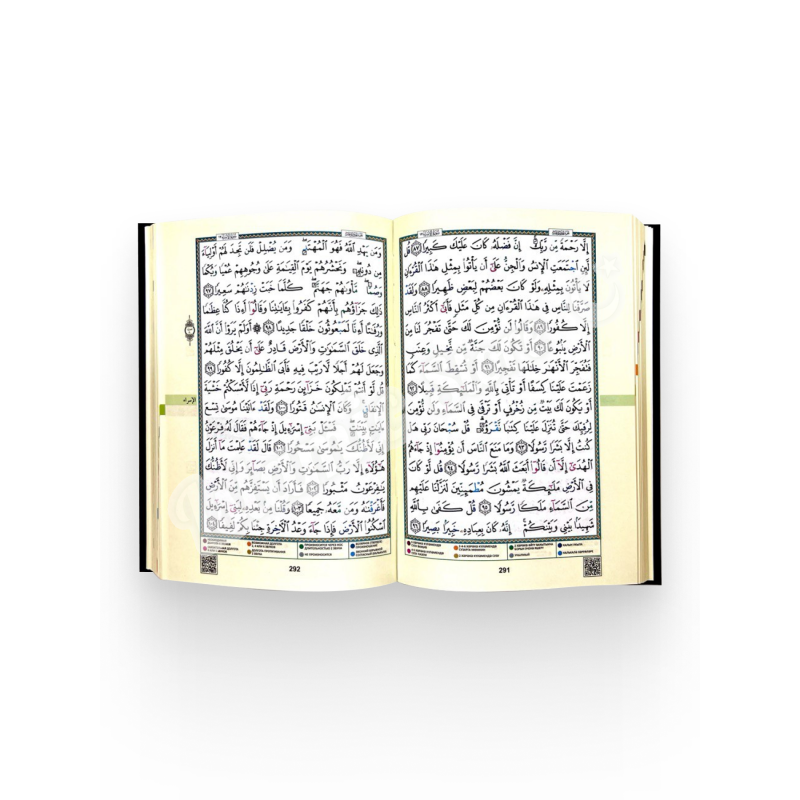 إِلَّا رَحْمَةً مِّن رَّبِّكَ إِنَّ فَضْلَهُۥ كَانَ عَلَيْكَ كَبِيرًا ٨٧ قُل
لَّئِنِ ٱجْتَمَعَتِ ٱلْإِنسُ وَٱلْجِنُّ عَلَىٰٓ أَن يَأْتُوا۟ بِمِثْلِ هَٰذَا ٱلْقُرْءَانِ
لَا يَأْتُونَ بِمِثْلِهِۦ وَلَوْ كَانَ بَعْضُهُمْ لِبَعْضٍ ظَهِيرًا ٨٨ وَلَقَدْ
صَرَّفْنَا لِلنَّاسِ فِى هَٰذَا ٱلْقُرْءَانِ مِن كُلِّ مَثَلٍ فَأَبَىٰٓ أَكْثَرُ ٱلنَّاسِ
إِلَّا كُفُورًا ٨٩ وَقَالُوا۟ لَن نُّؤْمِنَ لَكَ حَتَّىٰ تَفْجُرَ لَنَا مِنَ
ٱلْأَرْضِ يَنۢبُوعًا ٩٠ أَوْ تَكُونَ لَكَ جَنَّةٌ مِّن نَّخِيلٍ وَعِنَبٍ
فَتُفَجِّرَ ٱلْأَنْهَٰرَ خِلَٰلَهَا تَفْجِيرًا ٩١ أَوْ تُسْقِطَ ٱلسَّمَآءَ كَمَا
زَعَمْتَ عَلَيْنَا كِسَفًا أَوْ تَأْتِىَ بِٱللَّهِ وَٱلْمَلَٰٓئِكَةِ قَبِيلًا ٩٢
أَوْ يَكُونَ لَكَ بَيْتٌ مِّن زُخْرُفٍ أَوْ تَرْقَىٰ فِى ٱلسَّمَآءِ وَلَن نُّؤْمِنَ
لِرُقِيِّكَ حَتَّىٰ تُنَزِّلَ عَلَيْنَا كِتَٰبًا نَّقْرَؤُهُۥ قُلْ سُبْحَانَ رَبِّى هَلْ
كُنتُ إِلَّا بَشَرًا رَّسُولًا ٩٣ وَمَا مَنَعَ ٱلنَّاسَ أَن يُؤْمِنُوٓا۟ إِذْ جَآءَهُمُ
ٱلْهُدَىٰٓ إِلَّآ أَن قَالُوٓا۟ أَبَعَثَ ٱللَّهُ بَشَرًا رَّسُولًا ٩٤ قُل لَّوْ كَانَ
فِى ٱلْأَرْضِ مَلَٰٓئِكَةٌ يَمْشُونَ مُطْمَئِنِّينَ لَنَزَّلْنَا عَلَيْهِم
مِّنَ ٱلسَّمَآءِ مَلَكًا رَّسُولًا ٩٥ قُلْ كَفَىٰ بِٱللَّهِ
شَهِيدًۢا بَيْنِى وَبَيْنَكُمْ إِنَّهُۥ كَانَ بِعِبَادِهِۦ خَبِيرًۢا بَصِيرًا ٩٦
291
وَمَن يَهْدِ ٱللَّهُ فَهُوَ ٱلْمُهْتَدِ وَمَن يُضْلِلْ فَلَن تَجِدَ لَهُمْ أَوْلِيَآءَ
مِن دُونِهِۦ وَنَحْشُرُهُمْ يَوْمَ ٱلْقِيَٰمَةِ عَلَىٰ وُجُوهِهِمْ عُمْيًا وَبُكْمًا
وَصُمًّا مَّأْوَىٰهُمْ جَهَنَّمُ كُلَّمَا خَبَتْ زِدْنَٰهُمْ سَعِيرًا ٩٧
ذَٰلِكَ جَزَآؤُهُم بِأَنَّهُمْ كَفَرُوا۟ بِـَٔايَٰتِنَا وَقَالُوٓا۟ أَءِذَا كُنَّا عِظَٰمًا
وَرُفَٰتًا أَءِنَّا لَمَبْعُوثُونَ خَلْقًا جَدِيدًا ٩٨ ۞ أَوَلَمْ يَرَوْا۟ أَنَّ ٱللَّهَ
ٱلَّذِى خَلَقَ ٱلسَّمَٰوَٰتِ وَٱلْأَرْضَ قَادِرٌ عَلَىٰٓ أَن يَخْلُقَ مِثْلَهُمْ
وَجَعَلَ لَهُمْ أَجَلًا لَّا رَيْبَ فِيهِ فَأَبَى ٱلظَّٰلِمُونَ إِلَّا كُفُورًا ٩٩
قُل لَّوْ أَنتُمْ تَمْلِكُونَ خَزَآئِنَ رَحْمَةِ رَبِّىٓ إِذًا لَّأَمْسَكْتُمْ خَشْيَةَ
ٱلْإِنفَاقِ وَكَانَ ٱلْإِنسَٰنُ قَتُورًا ١٠٠ وَلَقَدْ ءَاتَيْنَا مُوسَىٰ تِسْعَ
ءَايَٰتٍۭ بَيِّنَٰتٍ فَسْـَٔلْ بَنِىٓ إِسْرَٰٓءِيلَ إِذْ جَآءَهُمْ فَقَالَ لَهُۥ فِرْعَوْنُ
إِنِّى لَأَظُنُّكَ يَٰمُوسَىٰ مَسْحُورًا ١٠١ قَالَ لَقَدْ عَلِمْتَ مَآ أَنزَلَ
هَٰٓؤُلَآءِ إِلَّا رَبُّ ٱلسَّمَٰوَٰتِ وَٱلْأَرْضِ بَصَآئِرَ وَإِنِّى لَأَظُنُّكَ
يَٰفِرْعَوْنُ مَثْبُورًا ١٠٢ فَأَرَادَ أَن يَسْتَفِزَّهُم مِّنَ ٱلْأَرْضِ
فَأَغْرَقْنَٰهُ وَمَن مَّعَهُۥ جَمِيعًا ١٠٣ وَقُلْنَا مِنۢ بَعْدِهِۦ لِبَنِىٓ إِسْرَٰٓءِيلَ
ٱسْكُنُوا۟ ٱلْأَرْضَ فَإِذَا جَآءَ وَعْدُ ٱلْـَٔاخِرَةِ جِئْنَا بِكُمْ لَفِيفًا ١٠٤
الإسراء
292